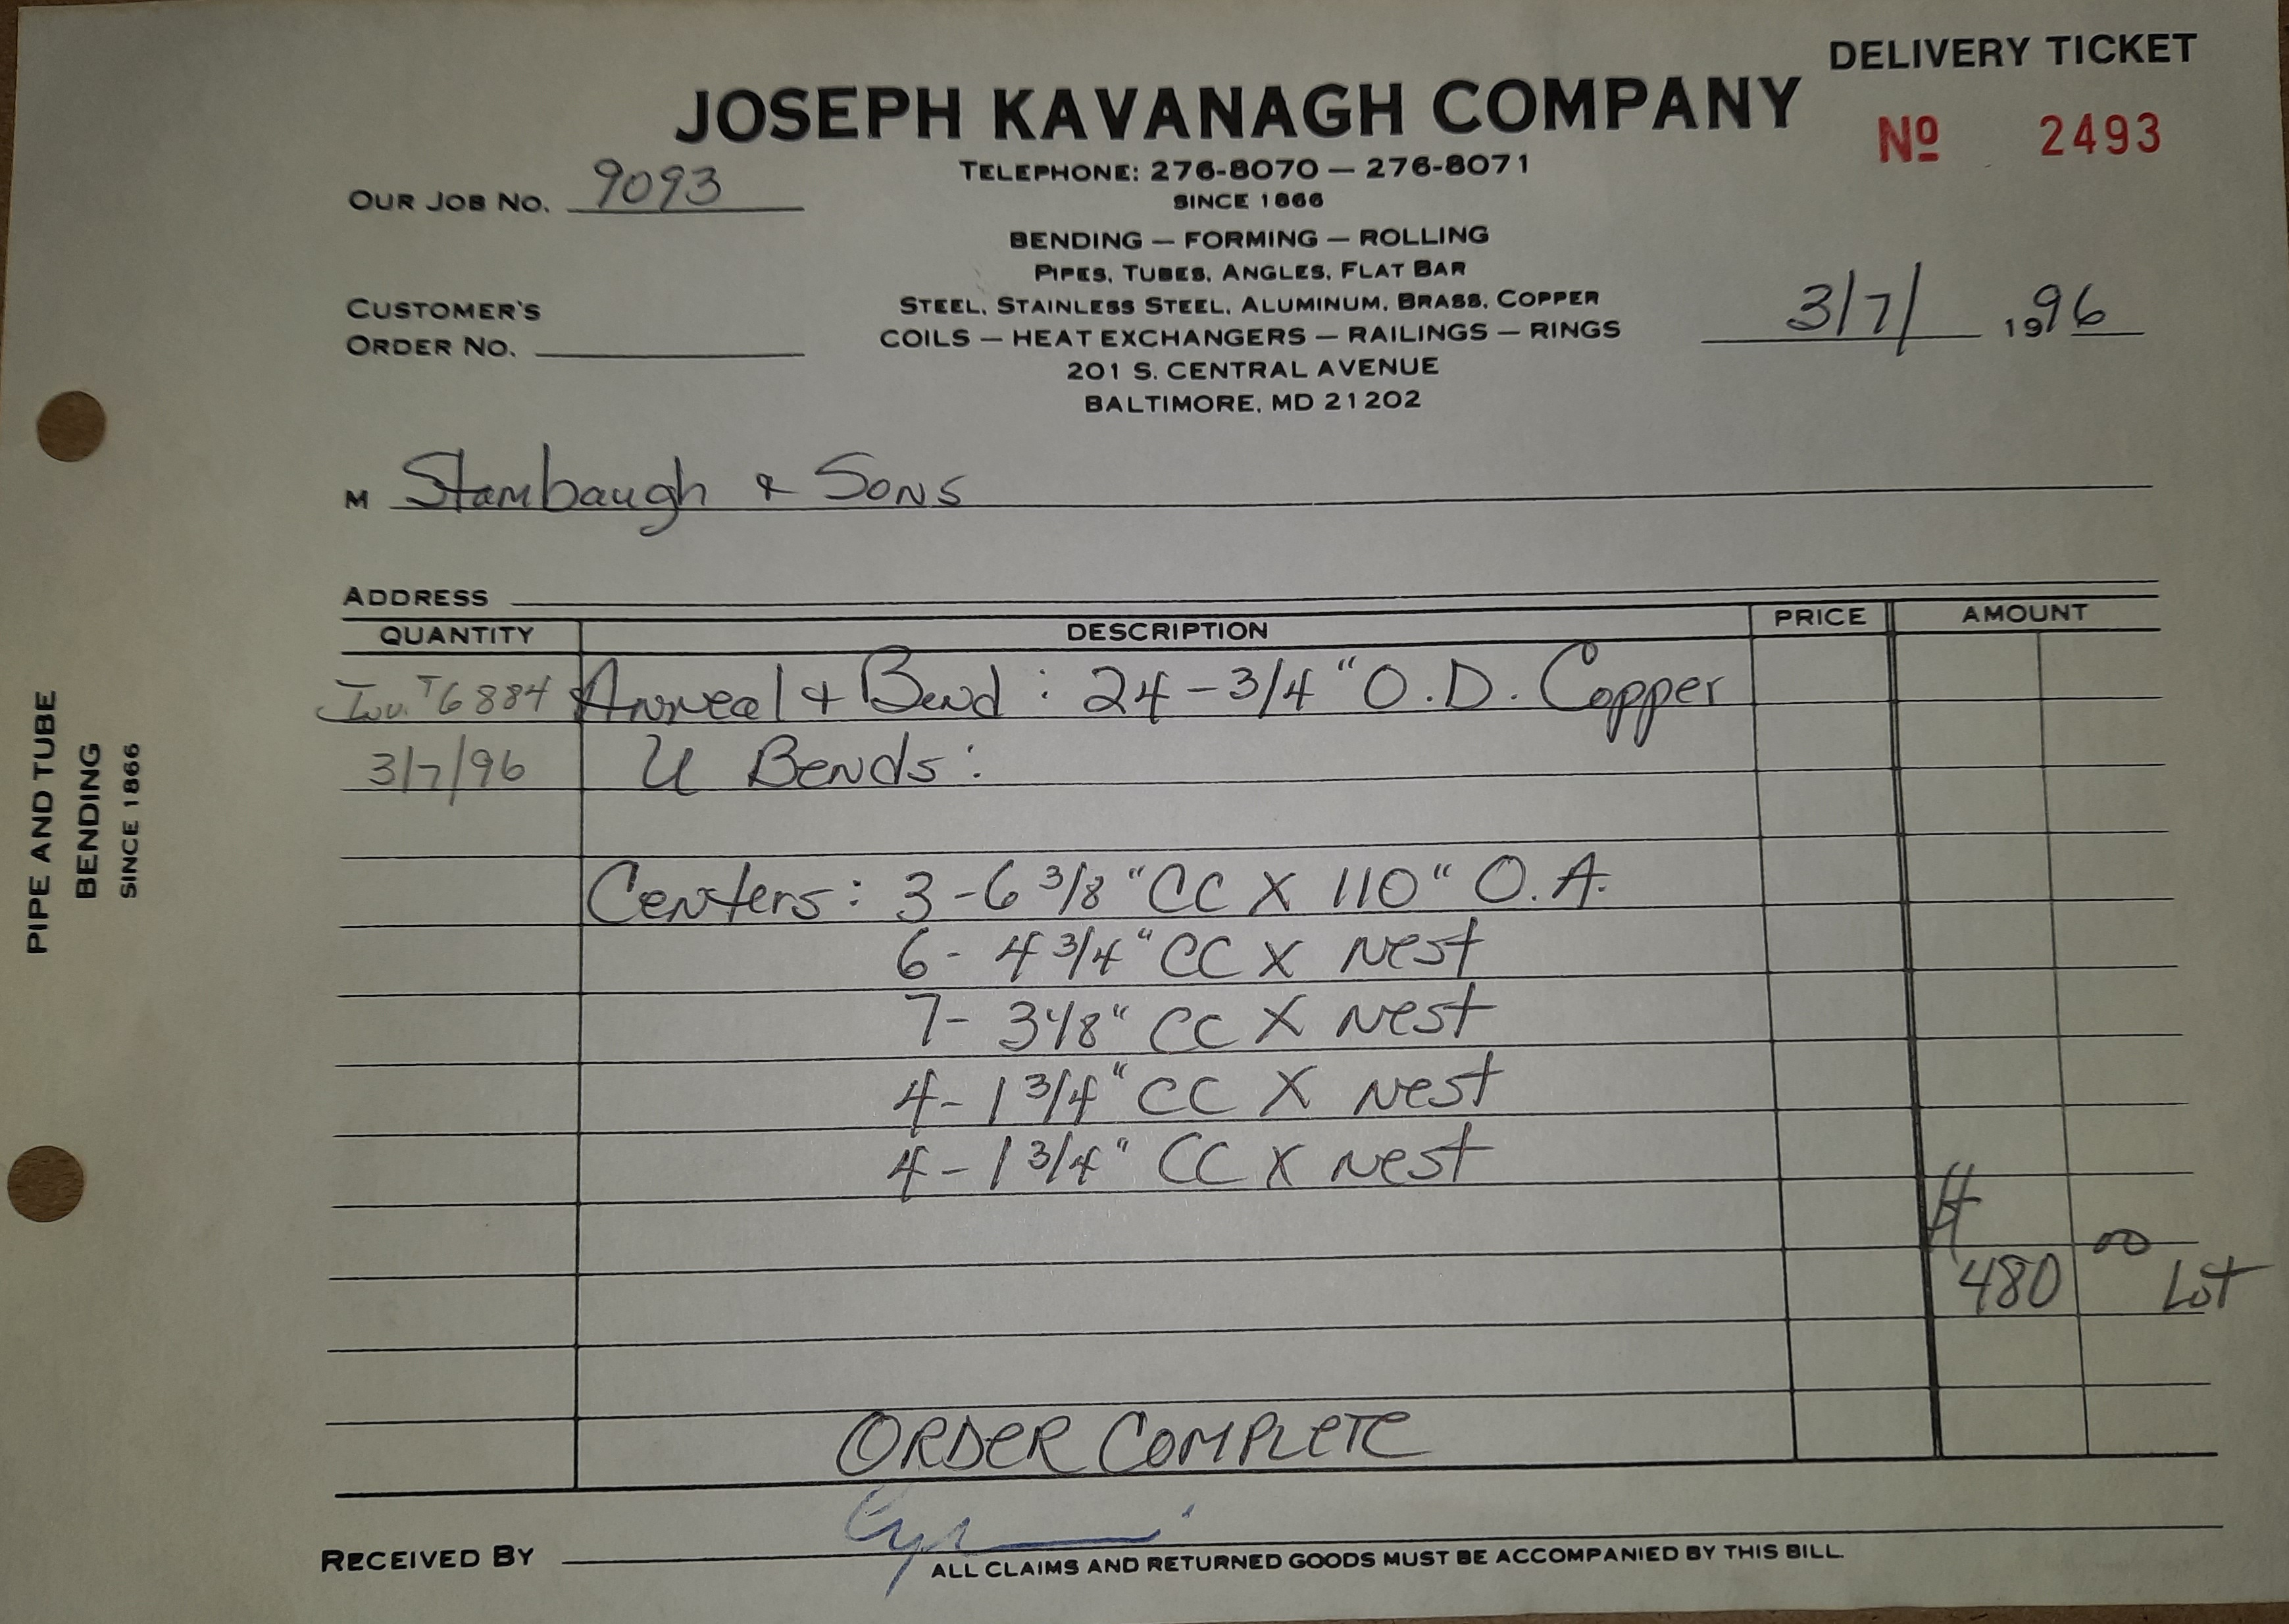 DELIVERY TICKET
JOSEPH KAVANAGH COMPANY
Nº 2493
TELEPHONE: 276-8070 — 276-8071
OUR JOB NO. 9093
SINCE 1866
BENDING — FORMING — ROLLING
PIPES, TUBES, ANGLES, FLAT BAR
CUSTOMER'S
ORDER NO.
STEEL, STAINLESS STEEL, ALUMINUM, BRASS, COPPER
COILS — HEAT EXCHANGERS — RAILINGS — RINGS
3/7/ 1996
201 S. CENTRAL AVENUE
BALTIMORE, MD 21202
M Stambaugh & Sons
ADDRESS
QUANTITY DESCRIPTION PRICE AMOUNT
6884 Anneal & Bend : 24 - 3/4" O.D. Copper
3/7/96 U Bends :
Centers : 3 - 6 3/8" CC X 110" O.A.
6 - 4 3/4" CC X Nest
7 - 3 1/8" CC X Nest
4 - 1 3/4" CC X Nest
4 - 1 3/4" CC X Nest
$480 00 Lot
ORDER COMPLETE
RECEIVED BY
ALL CLAIMS AND RETURNED GOODS MUST BE ACCOMPANIED BY THIS BILL.
PIPE AND TUBE
BENDING
SINCE 1866